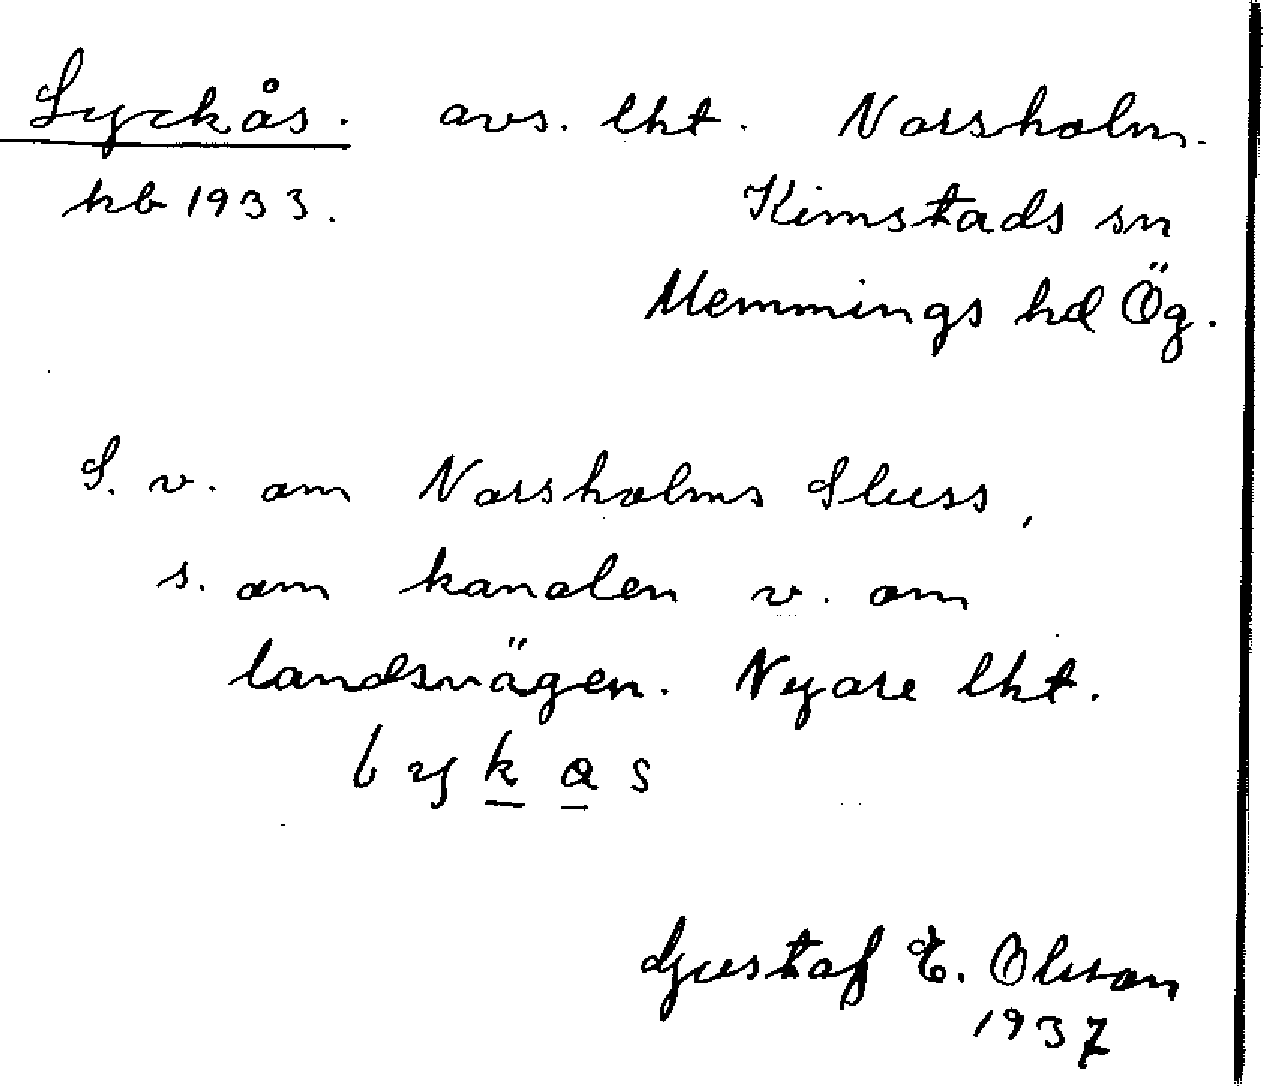 Lyckås. avs. lht. Norsholm.
kb 1933. Kimstads sn
Memmings hd Ög.
S. v. om Norsholms Sluss,
s. om kanalen v. om
landsvägen. Nyare lht.
lykas
Gustaf E. Olson
1937